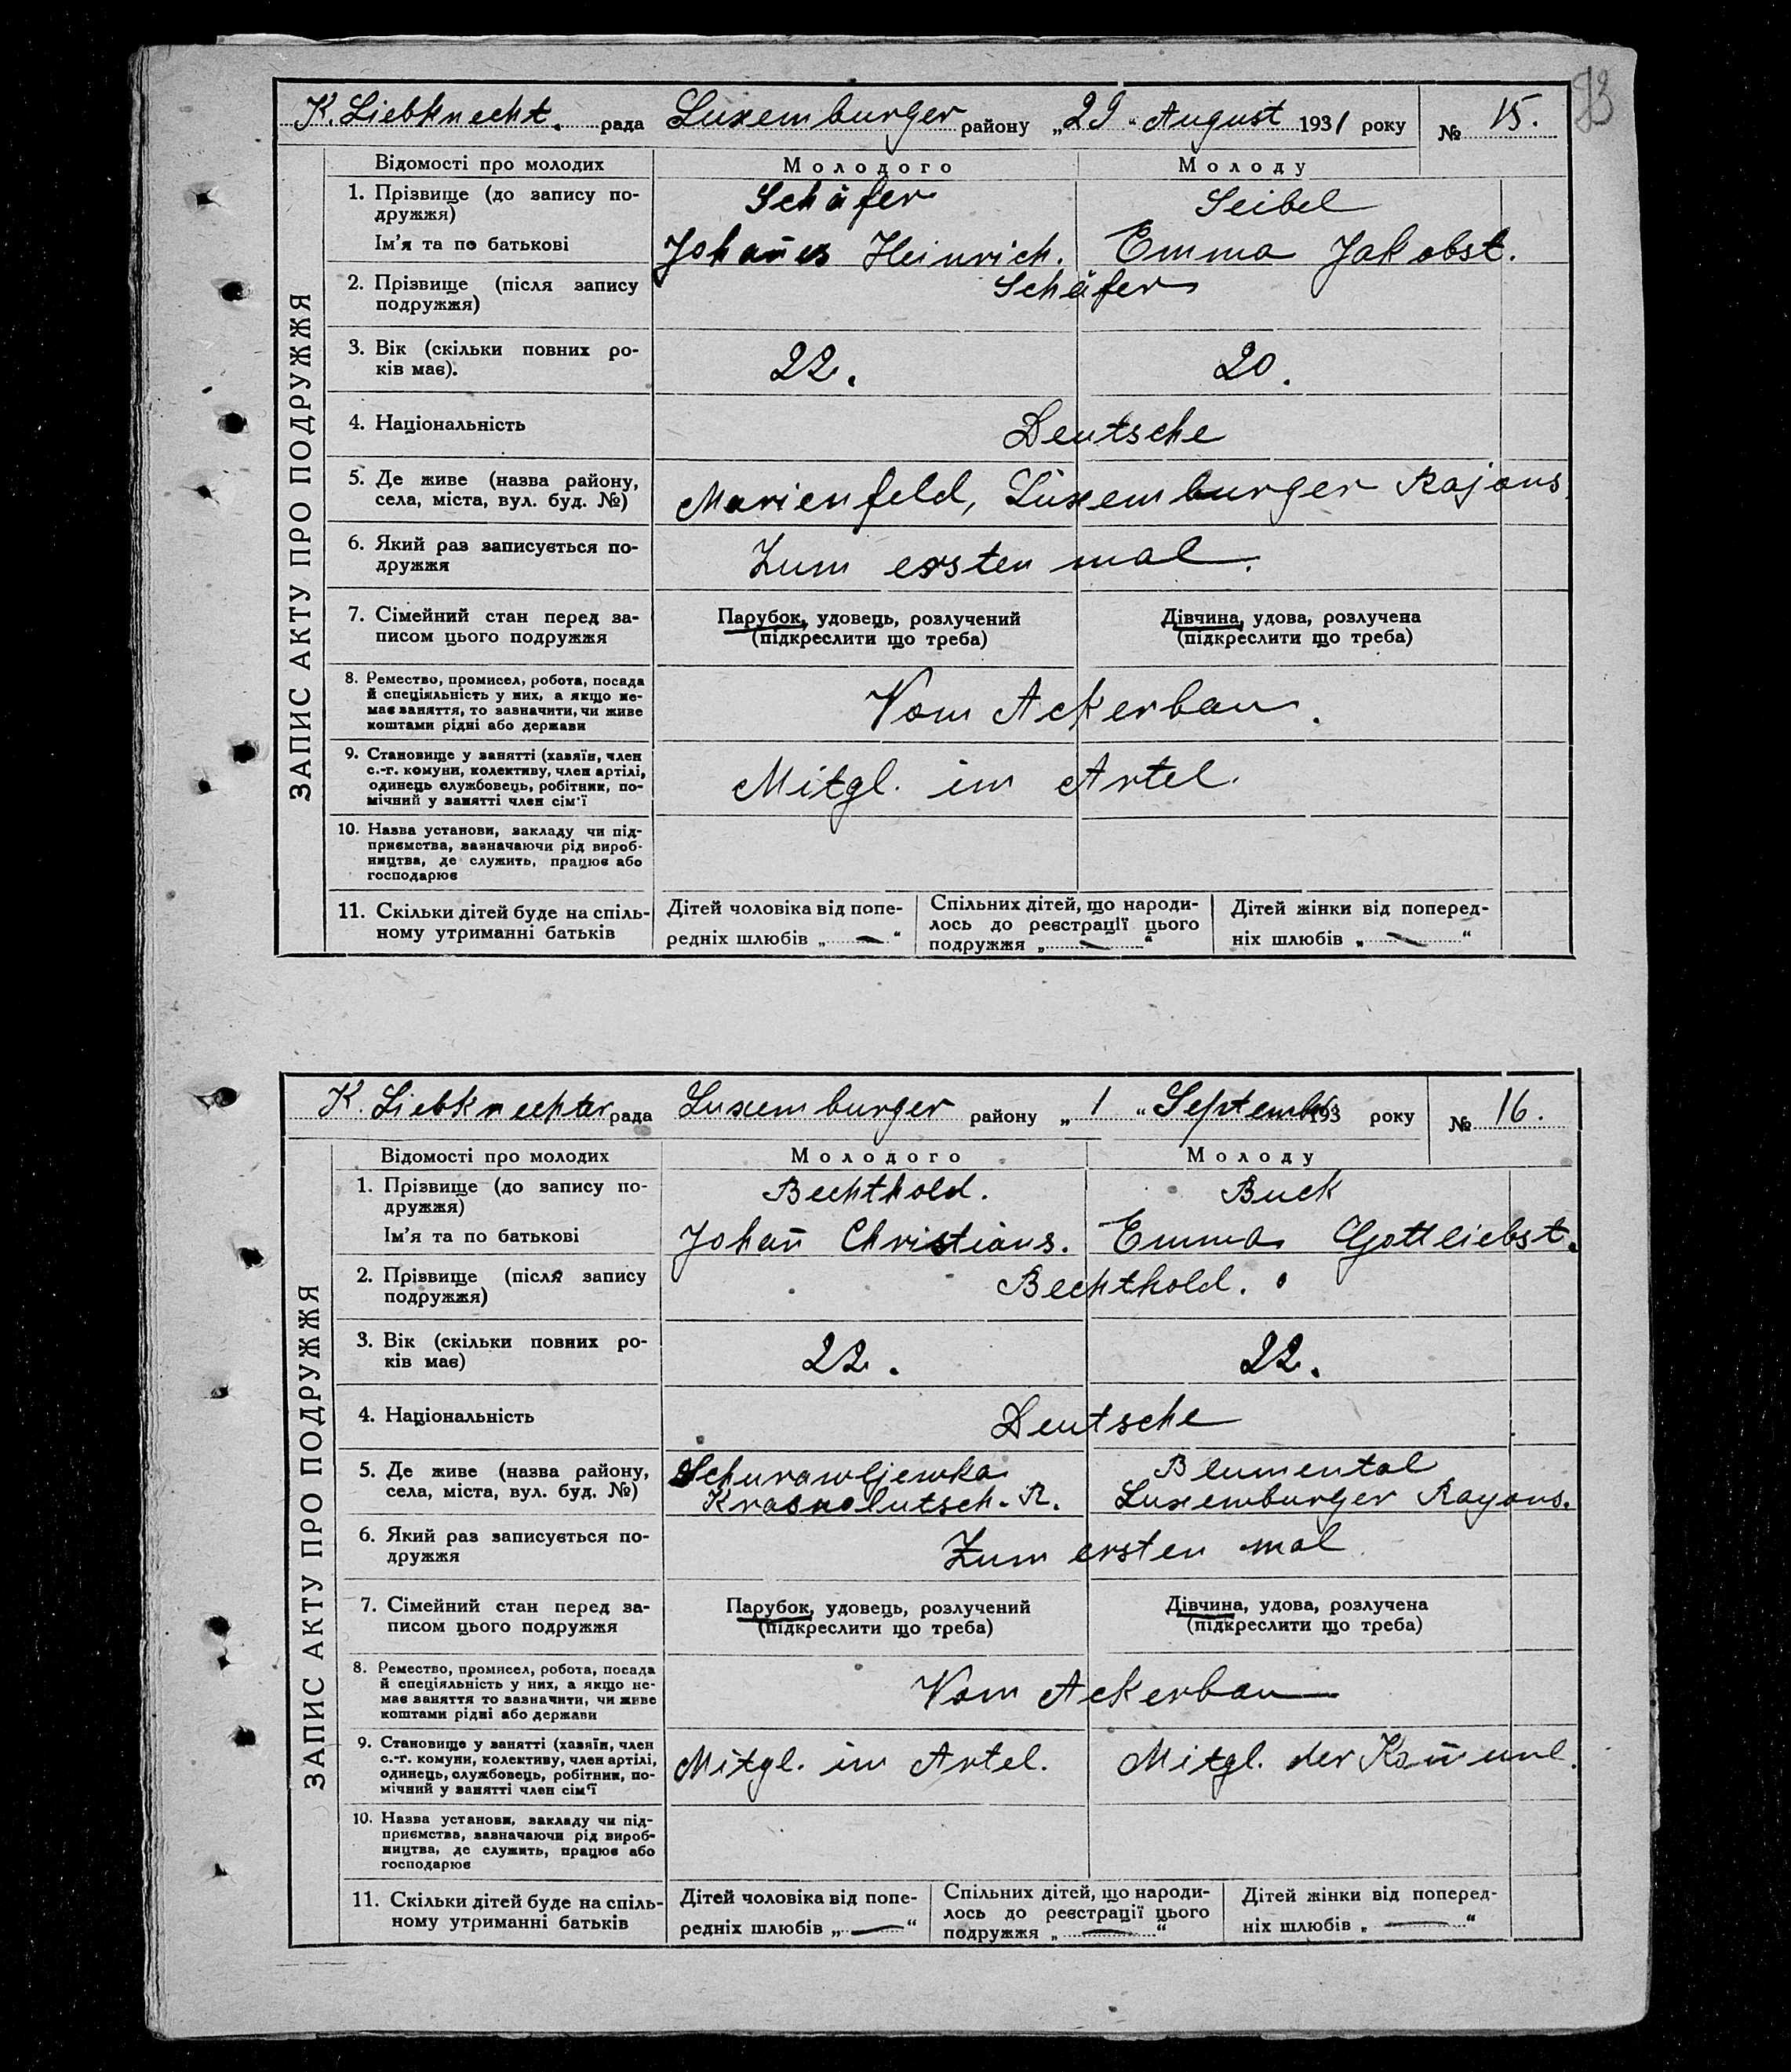 93
K. Liebknecht. рада Luxemburger району „29“ August 1931 року № 15.
ЗАПИС АКТУ ПРО ПОДРУЖЖЯ
Відомості про молодих Молодого Молоду
1. Прізвище (до запису по-
дружжя) Schäfer Seibel
Ім'я та по батькові Johan̄es Heinrich. Emma Jakobst.
2. Прізвище (після запису
подружжя) Schäfer
3. Вік (скільки повних ро-
ків має). 22. 20.
4. Національність Deutsche
5. Де живе (назва району,
села, міста, вул. буд. №) Marienfeld, Luxemburger Rajons
6. Який раз записується по-
дружжя Zum ersten mal.
7. Сімейний стан перед за-
писом цього подружжя
Парубок, удовець, розлучений
(підкреслити що треба)
Дівчина, удова, розлучена
(підкреслити що треба)
8. Ремество, промисел, робота, посада
й спеціяльність у них, а якщо не-
має заняття, то зазначити, чи живе
коштами рідні або держави
Vom Ackerbau.
9. Становище у занятті (хазяїн, член
с.-г. комуни, колективу, член артілі,
одинець службовець, робітник, по-
мічний у занятті член сім'ї
Mitgl. im Artel.
10. Назва установи, закладу чи під-
приємства, зазначаючи рід вироб-
ництва, де служить, працює або
господарює
11. Скільки дітей буде на спіль-
ному утриманні батьків
Дітей чоловіка від попе-
редніх шлюбів „—“
Спільних дітей, що народи-
лось до реєстрації цього
подружжя „—“
Дітей жінки від поперед-
ніх шлюбів „—“
K. Liebknechter рада Luxemburger району „1“ September 193 року № 16.
ЗАПИС АКТУ ПРО ПОДРУЖЖЯ
Відомості про молодих Молодого Молоду
1. Прізвище (до запису по-
дружжя) Bechthold. Buck
Ім'я та по батькові Johan̄ Christians. Emma Gottliebst.
2. Прізвище (після запису
подружжя) Bechthold.
3. Вік (скільки повних ро-
ків має) 22. 22.
4. Національність Deutsche
5. Де живе (назва району,
села, міста, вул. буд. №)
Schurawljewka
Krasnolutsch. R.
Blumental
Luxemburger Rayons.
6. Який раз записується по-
дружжя Zum ersten mal
7. Сімейний стан перед за-
писом цього подружжя
Парубок, удовець, розлучений
(підкреслити що треба)
Дівчина, удова, розлучена
(підкреслити що треба)
8. Ремество, промисел, робота, посада
й спеціяльність у них, а якщо не-
має заняття то зазначити, чи живе
коштами рідні або держави
Vom Ackerbau
9. Становище у занятті (хазяїн, член
с.-г. комуни, колективу, член артілі,
одинець, службовець, робітник, по-
мічний у занятті член сім'ї
Mitgl. im Artel. Mitgl. der Kom̄une.
10. Назва установи, закладу чи під-
приємства, зазначаючи рід вироб-
ництва, де служить, працює або
господарює
11. Скільки дітей буде на спіль-
ному утриманні батьків
Дітей чоловіка від попе-
редніх шлюбів „—“
Спільних дітей, що народи-
лось до реєстрації цього
подружжя „—“
Дітей жінки від поперед-
ніх шлюбів „—“